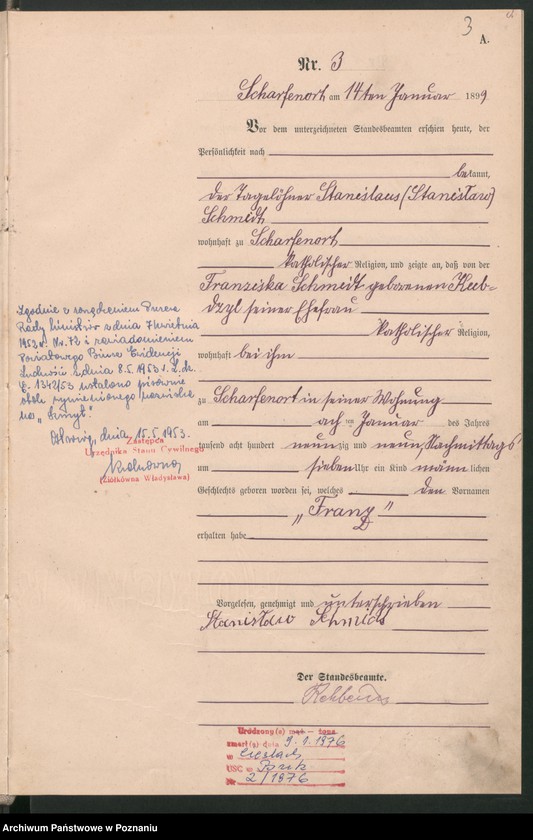 3
A.
Nr. 3
Scharfenort am 14ten Januar 1899
Vor dem unterzeichneten Standesbeamten erschien heute, der
Persönlichkeit nach
bekannt,
der Tagelöhner Stanislaus (Stanisław)
Schmidt
wohnhaft zu Scharfenort
katholischer Religion, und zeigte an, daß von der
Franziska Schmidt geborenen Kub-
dzyl seiner Ehefrau
katholischer Religion,
wohnhaft bei ihm
zu Scharfenort in seiner Wohnung
am ach ten Januar des Jahres
tausend acht hundert neunzig und neun, Nachmittags
um sieben Uhr ein Kind männlichen
Geschlechts geboren worden sei, welches den Vornamen
„Franz"
erhalten habe
Vorgelesen, genehmigt und unterschrieben
Stanisław Schmidt
Der Standesbeamte.
Zgodnie z rozporządzeniem Prezesa
Rady Ministrów z dnia 7 kwietnia
1953 r. Nr. 73 i zawiadomieniem
Powiatowego Biura Ewidencji
Ludności z dnia 8.5.1953 r. L.dz.
E. 1342/53 ustalono pisownię
obok wymienionego nazwiska
na „Szmyt".
dnia 15.5.1953.
Zastępca
Urzędnika Stanu Cywilnego
(Ziółkówna Władysława)
Urodzony(a) mąż — żona
zmarł(a) dnia 9.1.1976
w
USC w
Nr 2/1976
Archiwum Państwowe w Poznaniu